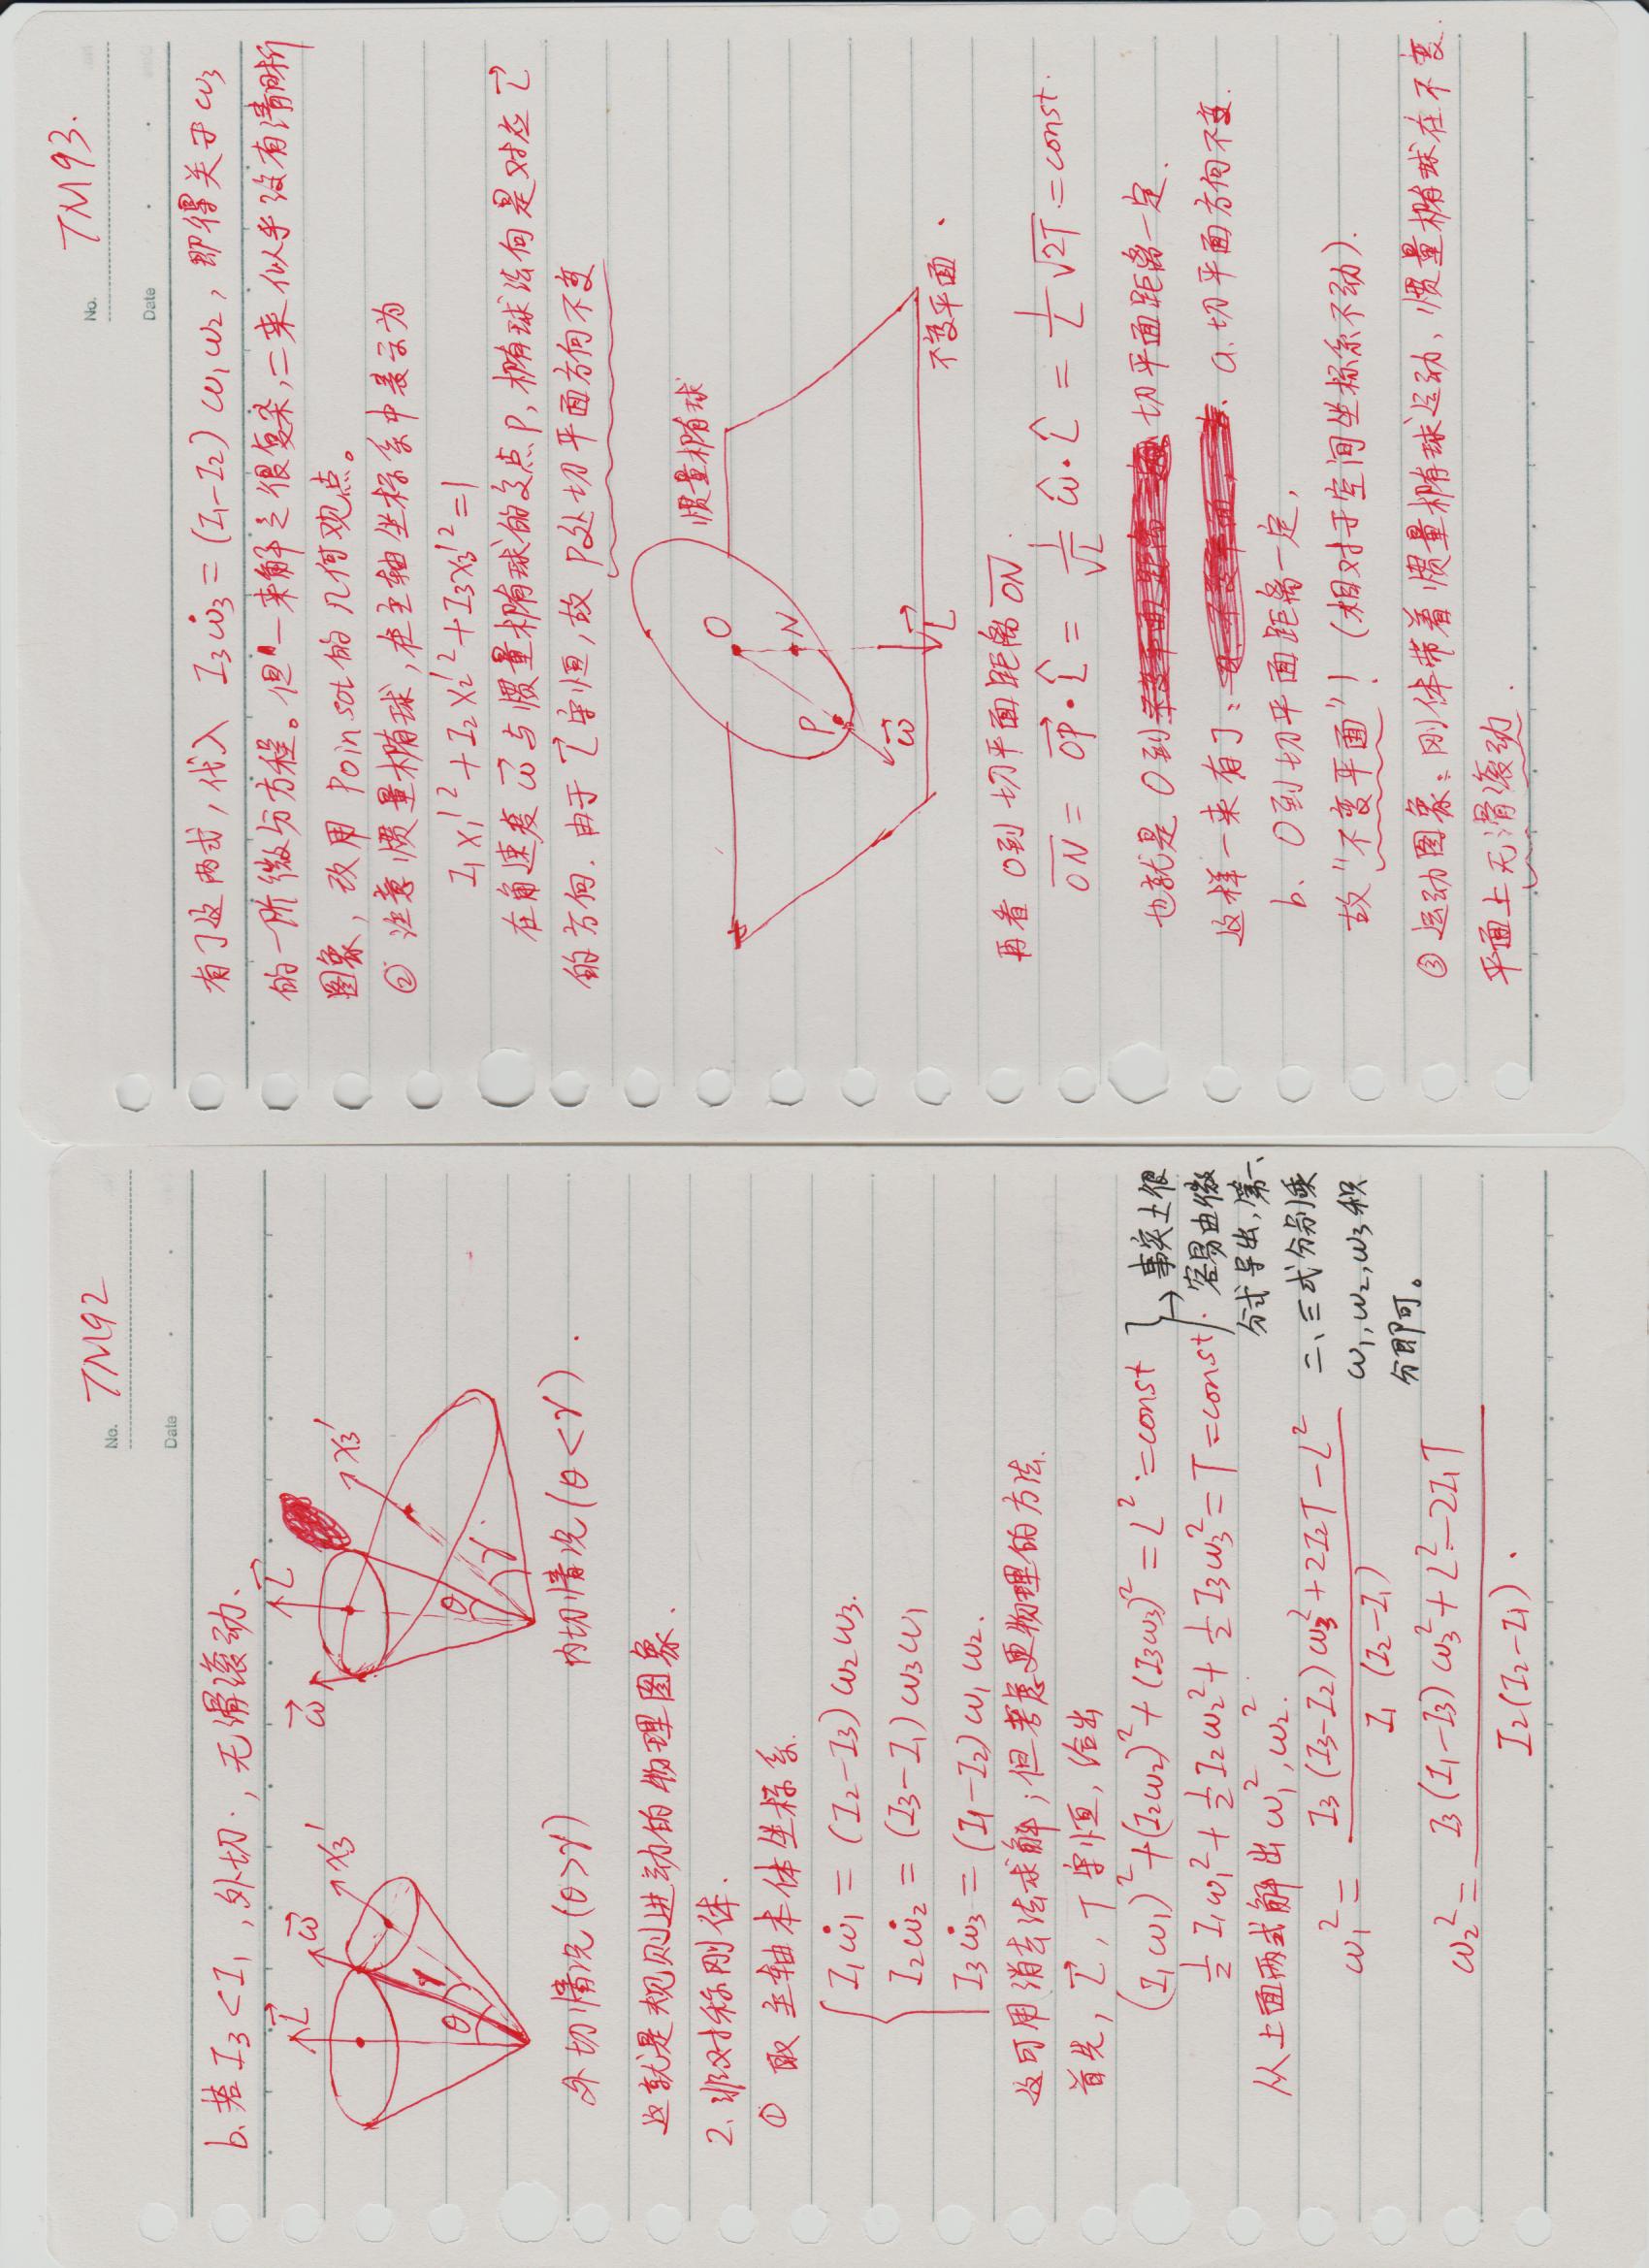 No. TM92
Date
b. 若 I₃ < I₁ , 外切 , 无滑滚动.
L⃗ ω⃗ x₃′ θ γ
ω⃗ L⃗ x₃′ θ γ
外切情况 (θ>γ) 内切情况 (θ<γ).
这就是规则进动的物理图象.
2. 非对称刚体.
① 取主轴本体坐标系.
I₁ω̇₁ = (I₂-I₃) ω₂ω₃.
I₂ω̇₂ = (I₃-I₁) ω₃ω₁
I₃ω̇₃ = (I₁-I₂) ω₁ω₂.
这可用消去法求解; 但考虑更物理的方法.
首先, L⃗, T 守恒, 给出
(I₁ω₁)² + (I₂ω₂)² + (I₃ω₃)² = L² = const
½ I₁ω₁² + ½ I₂ω₂² + ½ I₃ω₃² = T = const.
→ 事实上很
容易由微
分式导出, 第一、
二、三式分别乘
ω₁, ω₂, ω₃ 积
分即可。
从上面两式解出 ω₁², ω₂².
ω₁² = (I₃ (I₃-I₂) ω₃² + 2I₂T - L²) / (I₁ (I₂-I₁))
ω₂² = (I₃ (I₁-I₃) ω₃² + L² - 2I₁T) / (I₂ (I₂-I₁)).
No. TM93.
Date
有了这两式, 代入 I₃ω̇₃ = (I₁-I₂) ω₁ω₂, 即得关于 ω₃
的一阶微分方程。但一来解之很复杂, 二来似乎没有清晰
图象, 改用 Poinsot 的几何观点。
② 注意惯量椭球, 在主轴坐标系中表示为
I₁x₁′² + I₂x₂′² + I₃x₃′² = 1
在角速度 ω⃗ 与惯量椭球的交点 P, 椭球法向是对应 L⃗
的方向. 由于 L⃗ 守恒, 故 P处切平面方向不变
惯量椭球
O
N
P
ω⃗
L⃗
不变平面.
再看 O到切平面距离 ON̅.
ON̅ = OP⃗ · L̂ = 1/√I ω̂ · L̂ = 1/L √2T = const.
也就是 O到 切平面距离一定.
这样一来有了: a. 切平面方向不变.
b. O到切平面距离一定,
故 "不变平面"! (相对于空间坐标系不动).
③ 运动图象: 刚体带着惯量椭球运动, 惯量椭球在不变
平面上无滑滚动.